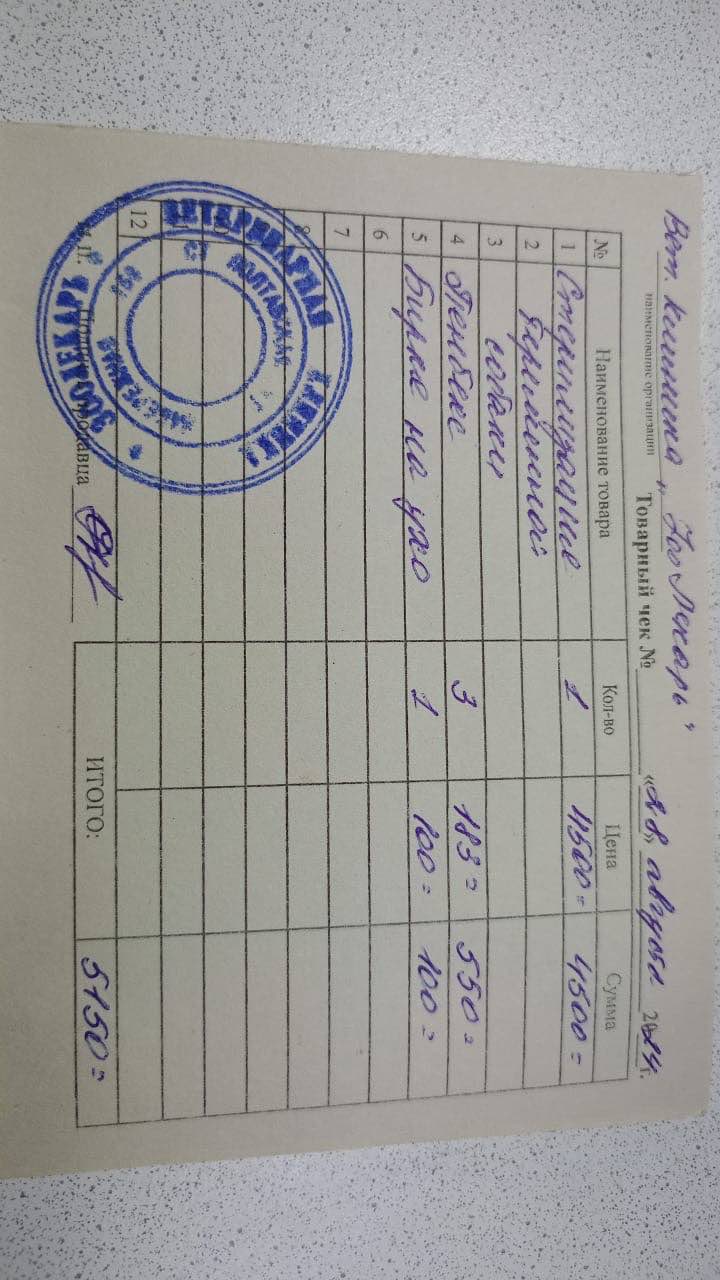 Вет. клиника „ЗооЛекарь“
наименование организации
Товарный чек № «28» августа 2024г.
№ Наименование товара Кол-во Цена Сумма
1 Стерилизация 1 4500= 4500=
2 беременной
3 собаки
4 Пенбекс 3 183= 550=
5 Бирка на ухо 1 100= 100=
6
7
8
12
ИТОГО: 5150=
М. П. Подпись продавца
ВЕТЕРИНАРНАЯ КЛИНИКА
ЗООЛЕКАРЬ
ПОЛТАВСКАЯ